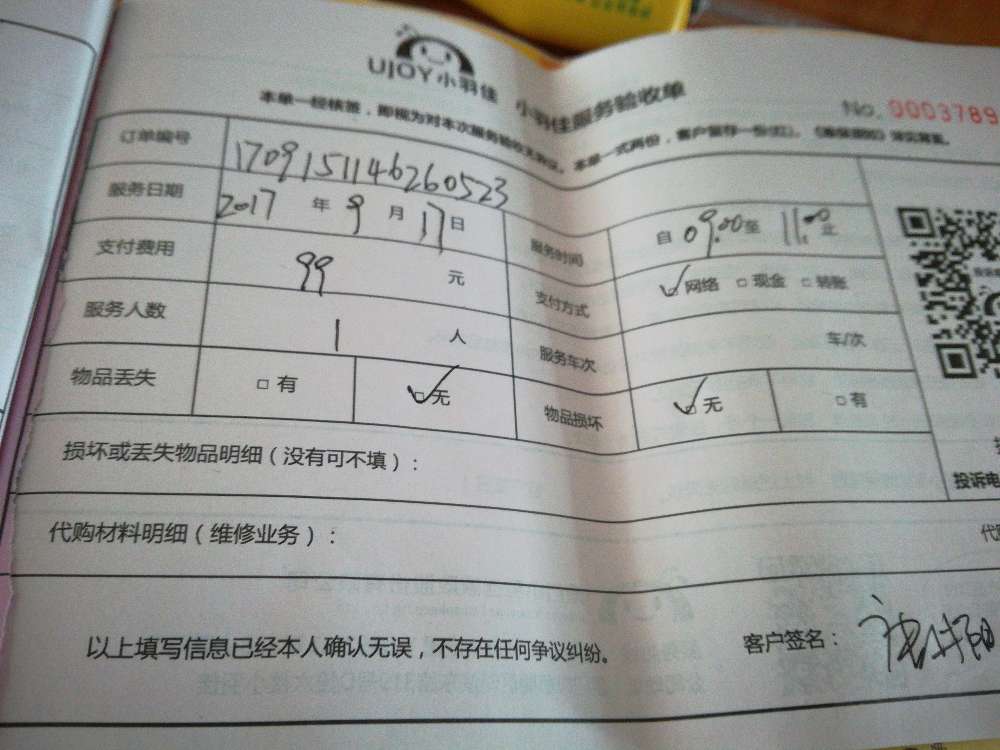 UJOY小羽佳 小羽佳服务验收单
No. 0003789
本单一经核签，即视为对本次服务验收无异议。本单一式两份，客户留存一份(红)。
订单编号 170915114626052３
服务日期 2017 年 9 月 17 日 服务时间 自 09:00 至 11:00 止
支付费用 99 元 支付方式 网络 现金 转账
服务人数 1 人 服务车次 车/次
物品丢失 有 无 物品损坏 无 有
损坏或丢失物品明细（没有可不填）：
投诉电
代购材料明细（维修业务）：
代
以上填写信息已经本人确认无误，不存在任何争议纠纷。 客户签名：